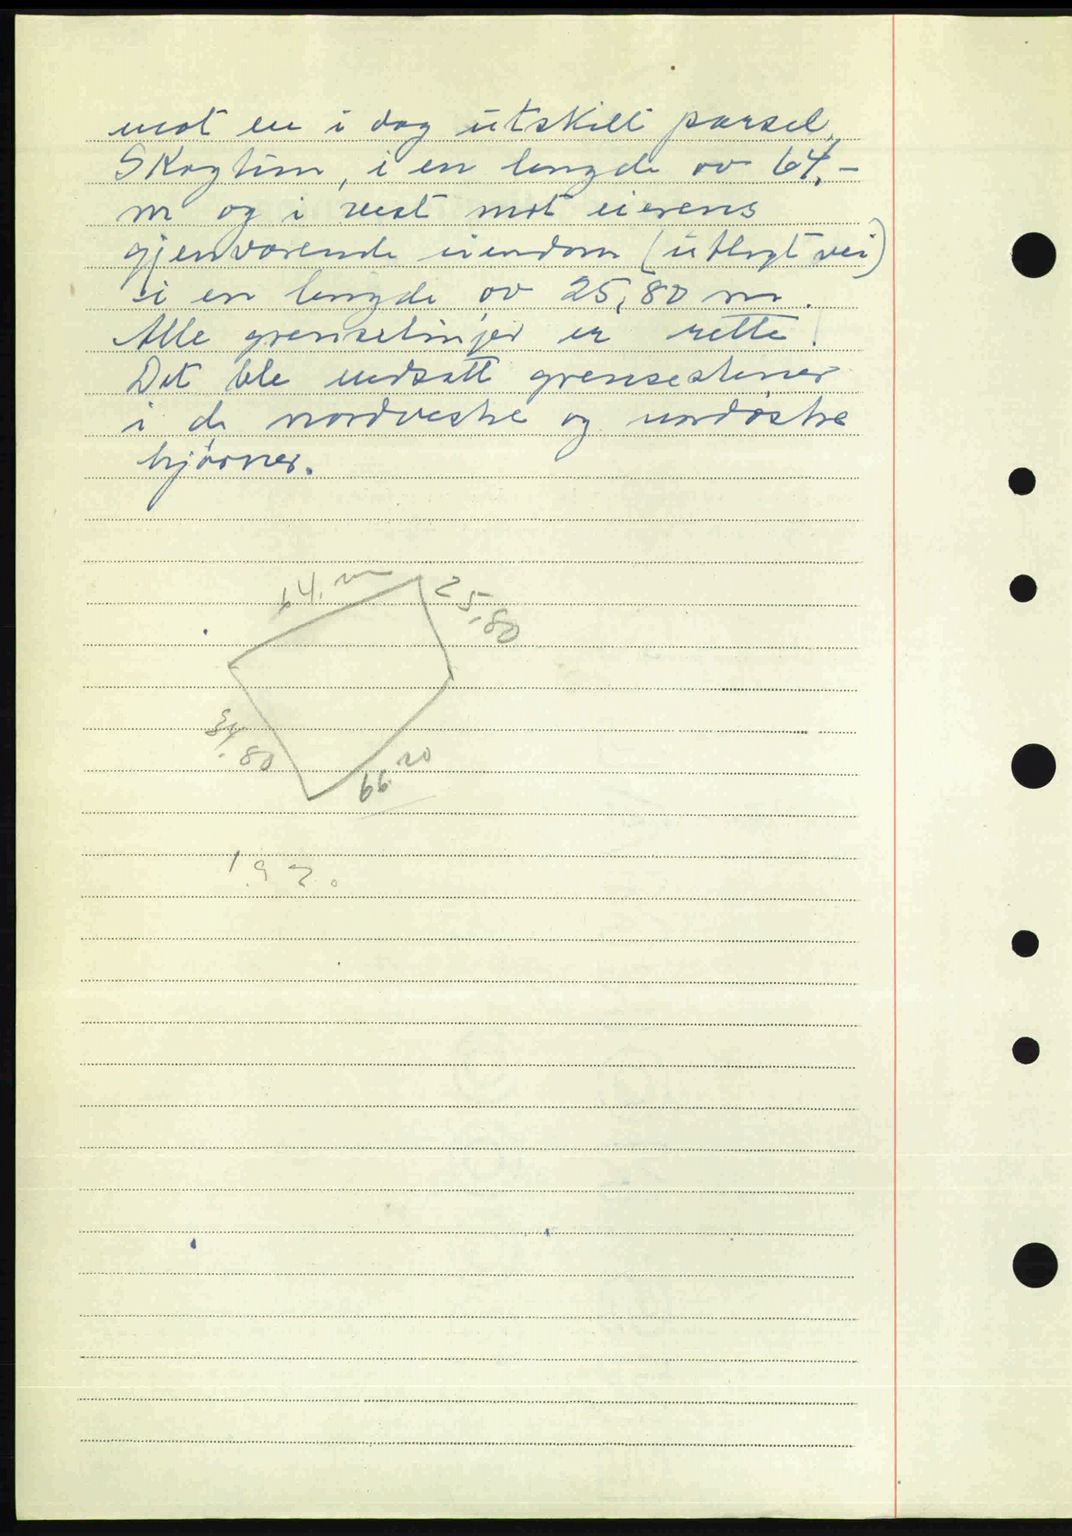 mot en i dag utskilt parsel,
Skogtun, i en lengde av 64,-
m og i vest mot eierens
gjenværende eiendom (utlagt vei)
i en lengde av 25,80 m.
Alle grenselinjer er rette.
Det ble nedsatt grensestener
i de nordvestre og nordøstre
hjørner.
64. m
25,80
34.80
66.20
192.